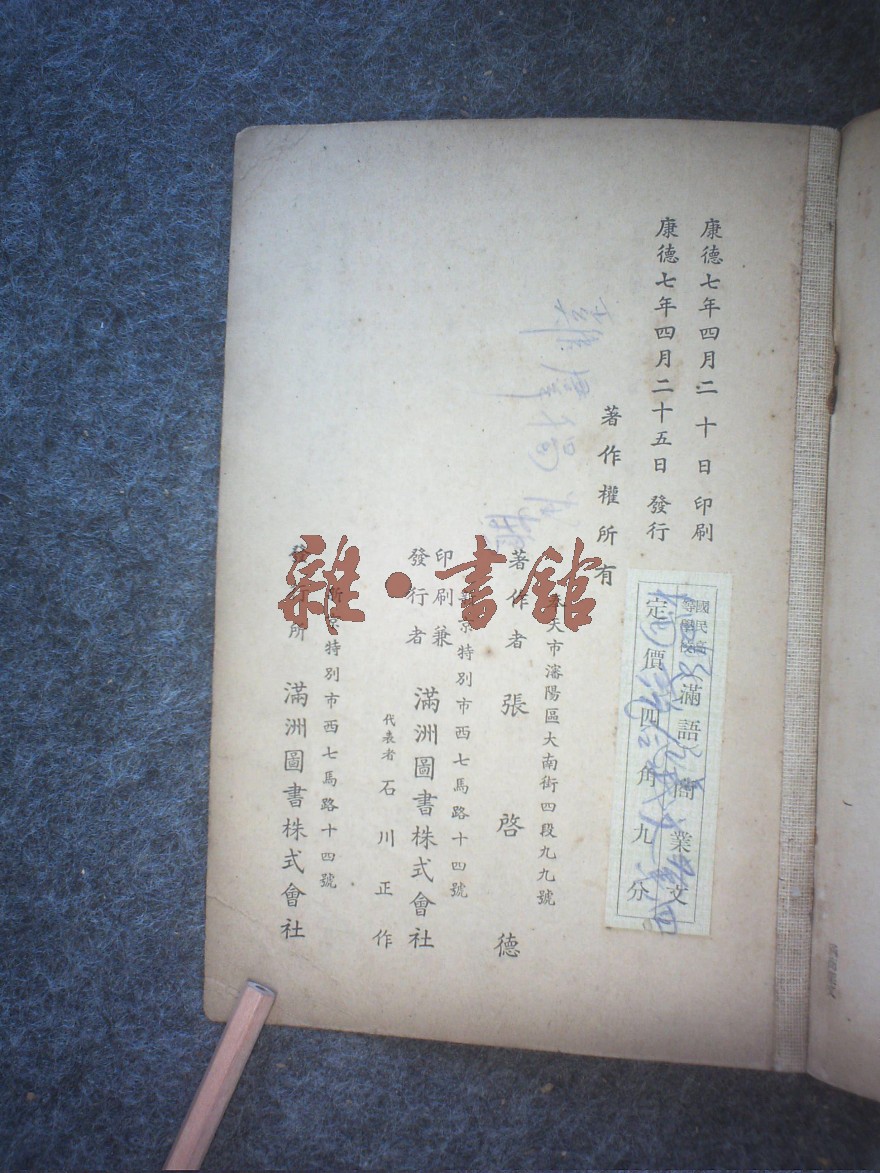 康德七年四月二十日印刷
康德七年四月二十五日發行
著作權所有
國民高等學校
滿語商業文
定價四角九分
奉天市瀋陽區大南街四段九九號
著作者 張啓德
新京特別市西七馬路十四號
印刷兼發行者 滿洲圖書株式會社
代表者 石川正作
新京特別市西七馬路十四號
發行所 滿洲圖書株式會社
雜·書館